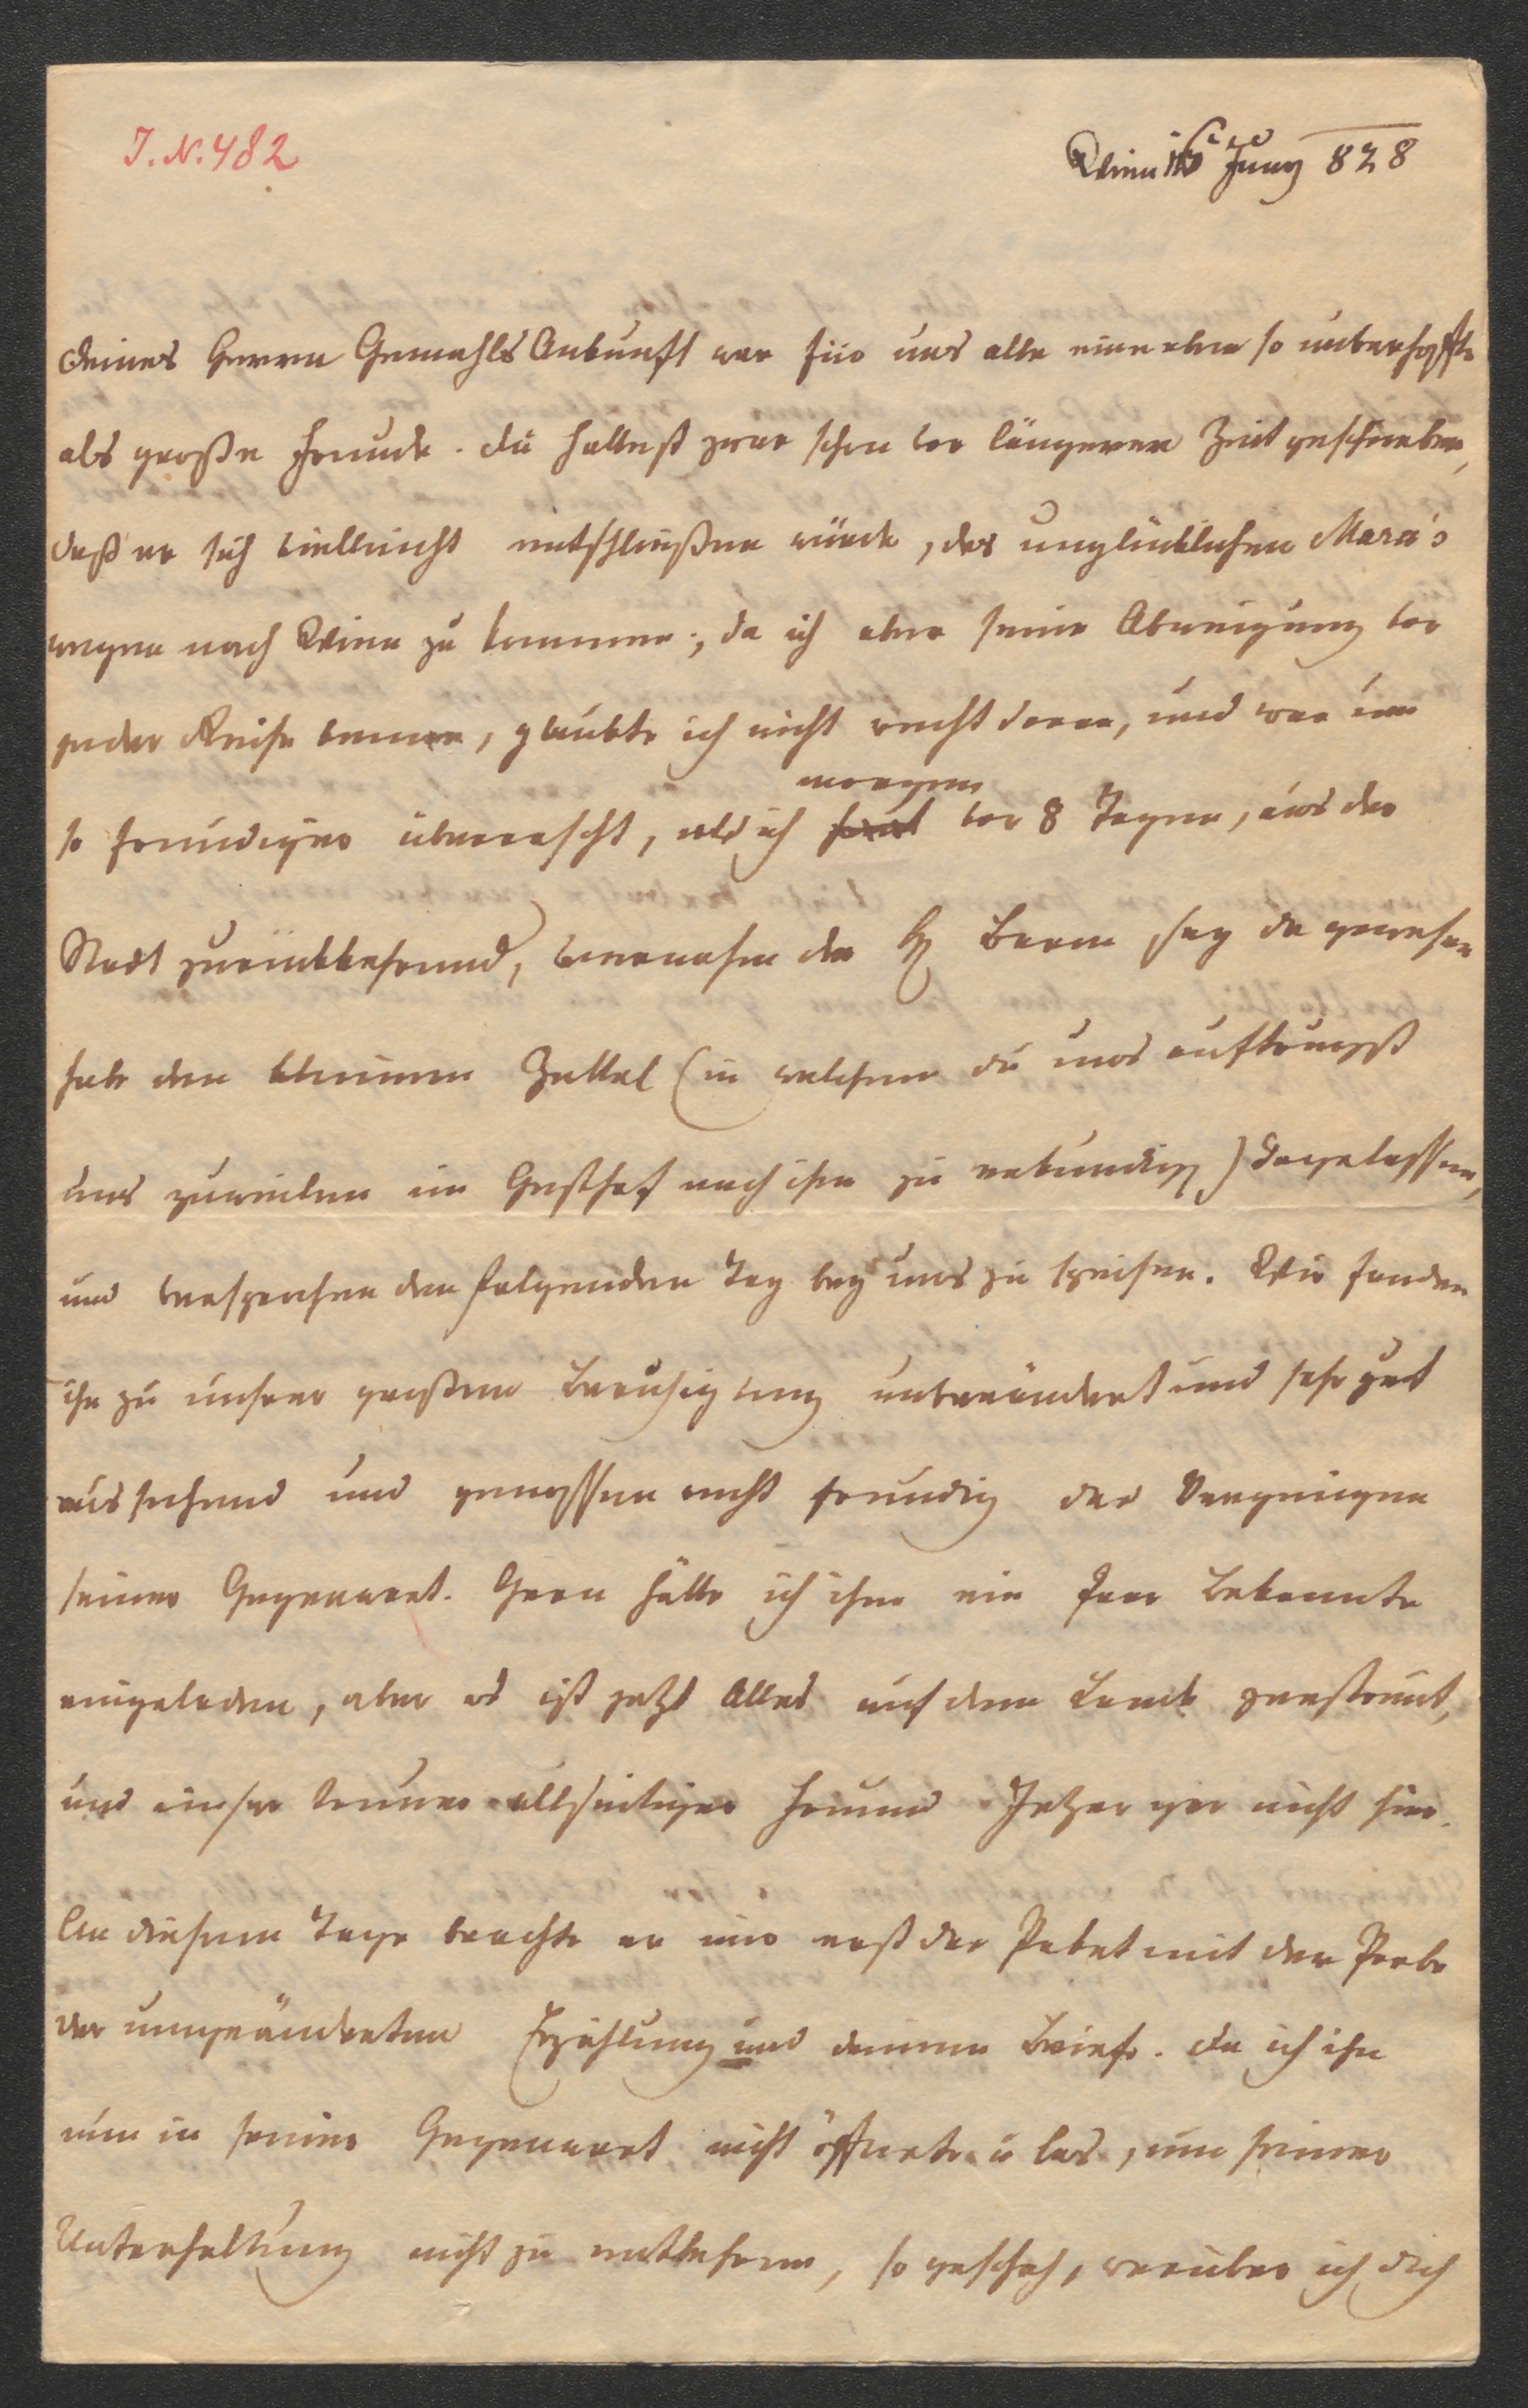 J. N. 482
Wien 16 Juny 828
Deines Herrn Gemahls Ankunft war für uns alle eine eben so unverhoffte
als große Freude. Du hattest zwar schon vor längerer Zeit geschrieben,
daß er sich vielleicht entschließen würde, des unglücklichen Mara's
wegen nach Wien zu kommen, da ich aber seine Abneigung vor
jeder Reise kenne, glaubte ich nicht recht daran, und war um
so freudiger überrascht, als ich morgen vor 8 Tagen, aus der
Stadt zurückkehrend, vernahm der H Baron sey da gewesen
habe den kleinen Zettel (in welchem du uns aufträgst
uns zuweilen im Gasthof nach ihm zu erkundigen) dagelassen,
und versprochen den folgenden Tag bey uns zu speisen. Wir fanden
ihn zu unserer großen Beruhigung unverändert und sehr gut
aussehend und genossen recht freudig das Vergnügen
seiner Gegenwart. Gern hätte ich ihm ein Paar Bekannte
eingeladen, aber es ist jetzt Alles auf dem Lande zerstreut,
und unser treuer allseitiger Freund Jetzer gar nicht hier.
An diesem Tage brachte er mir erst das Paket mit der Probe
der umgeänderten Erzählung und deinem Briefe. Da ich ihn
nun in seiner Gegenwart nicht öffnete u las, um seiner
Unterhaltung nicht zu entbehren, so geschah, worüber ich dich